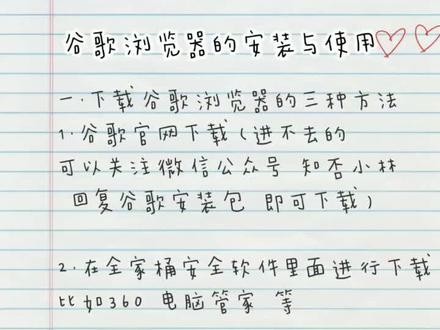 谷歌浏览器的安装与使用
一.下载谷歌浏览器的三种方法
1.谷歌官网下载(进不去的
可以关注微信公众号 知否小林
回复谷歌安装包 即可下载)
2.在全家桶安全软件里面进行下载
比如360 电脑管家 等